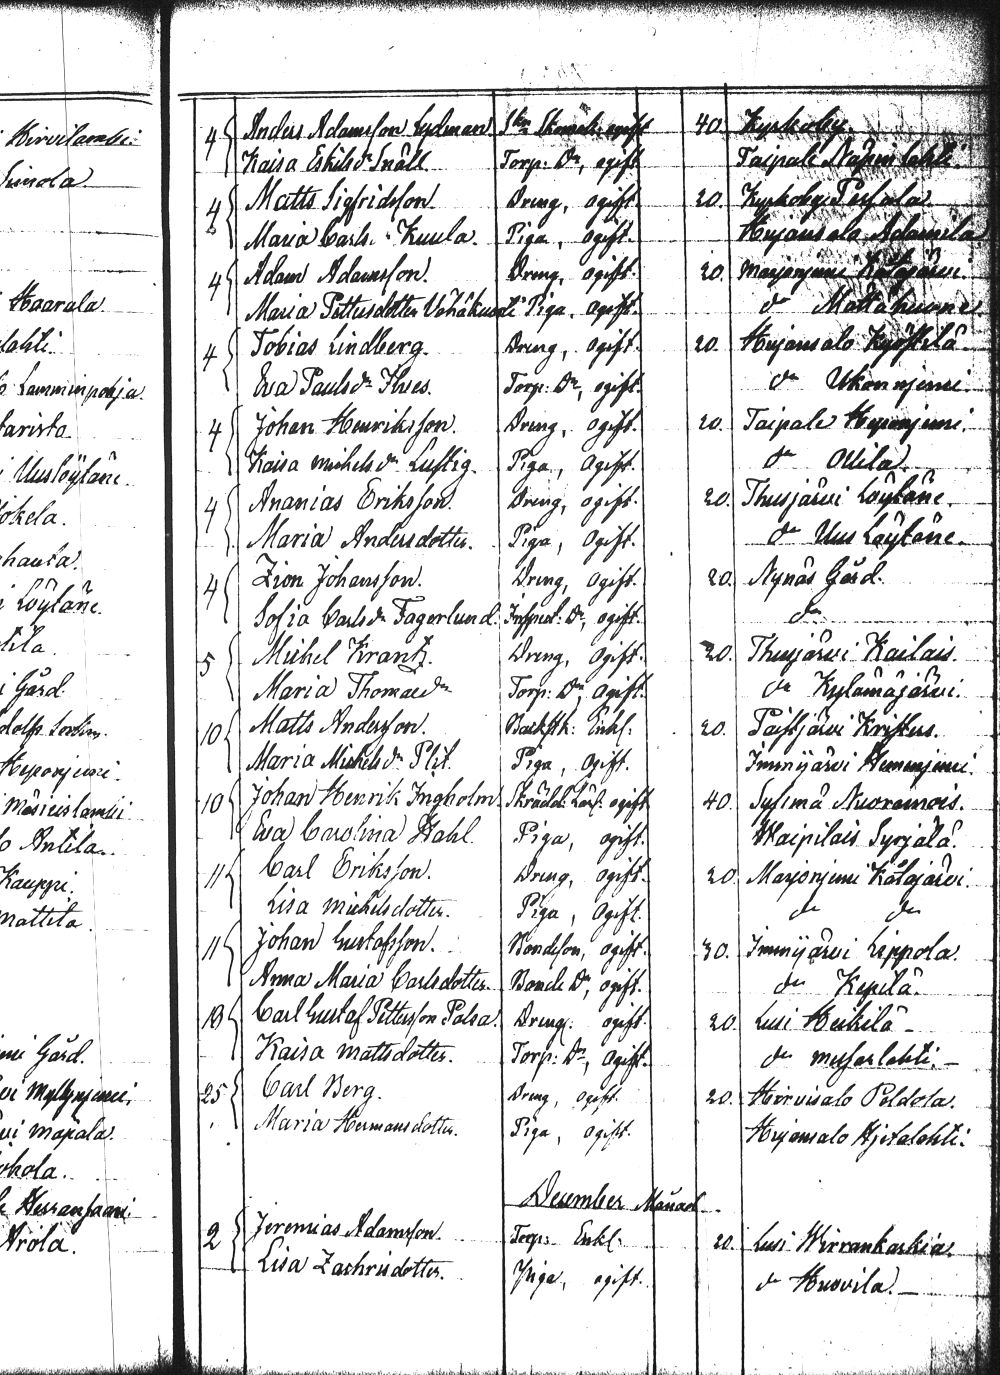 Kirvilambi.
Simola.
Haarala.
lahti.
Lamminpohja.
tarista
Uuslöytäne.
Jokela.
hauta.
Löytäne.
tila.
Gård.
Heponjemi.
Antila.
Kauppi.
Mattila.
Gård.
Myllynjemi.
Mäpälä.
ohola.
Herransaari.
Arola.
4 Anders Adamsson Lydman Skomak: ogift 40. Kyrkoby.
Kaisa Eskilsdr Snäll Torp: Dr, ogift. Taipale
4 Matts Sigfridsson. Dreng, ogift. 20. Kyrkoby Pessala
Maria Carlsdr Kuula. Piga, ogift. Hujansalo Adamila
4 Adam Adamsson. Dreng, ogift. 20. Marjonjemi Katajärvi
Maria Pettersdotter Vähäkuorti Piga. ogift. dr Mattahuone
4 Tobias Lindberg. Dreng, ogift. 20. Hujansalo Kyöstilä
Eva Paulsdr Ilves. Torp: Dr, ogift. dr Ukonnjemi.
4 Johan Henriksson. Dreng, ogift. 20. Taipale Heponjemi.
Kaisa Michelsdr Lustig. Piga, ogift. dr Ollila.
4 Ananias Eriksson. Dreng, ogift. 20. Thusjärvi Löytäne.
Maria Andersdotter. Piga, ogift. dr Uus Löytäne.
4 Zion Johansson. Dreng, ogift. 20. Nynäs Gård.
Sofia Carlsdr Fagerlund. Inspect: Dr, ogift. dr
5 Michel Krantz. Dreng, ogift. 20. Thusjärvi Kailais.
Maria Thomaedr Torp: Dr, ogift. dr Kylämäjärvi.
10 Matts Andersson. Backstk: Enkl: 20. Paistjärvi Kristus.
Maria Michelsdr Plit. Piga, ogift. Imnijärvi Hemmnjemi.
10 Johan Henrik Ingholm Skrädd: Lärl: ogift. 40. Sysimä Nuoramois.
Eva Carolina Stahl. Piga, ogift. Waipilais Syrjälä.
11 Carl Eriksson. Dreng, ogift. 20. Marjonjemi Katajärvi.
Lisa Michelsdotter. Piga, ogift. dr dr
11 Johan Gustafsson. Bondeson, ogift. 30. Imnijärvi Lippola.
Anna Maria Carlsdotter. Bonde Dr, ogift. dr Kepilä.
13 Carl Gustaf Pettersson Palsa. Dreng. ogift. 20. Lusi Heikilä
Kaisa Mattsdotter. Torp: Dr, ogift. dr Myllarlahti.
25 Carl Berg. Dreng, ogift. 20. Hirvisalo Peldola.
Maria Hermansdotter. Piga, ogift. Hujansalo Hjetalahti.
December Månad
2 Jeremias Adamsson. Torp: Enkl: 20. Lusi Wirrankoskia.
Lisa Zachrisdotter. Piga, ogift. dr Huovila.